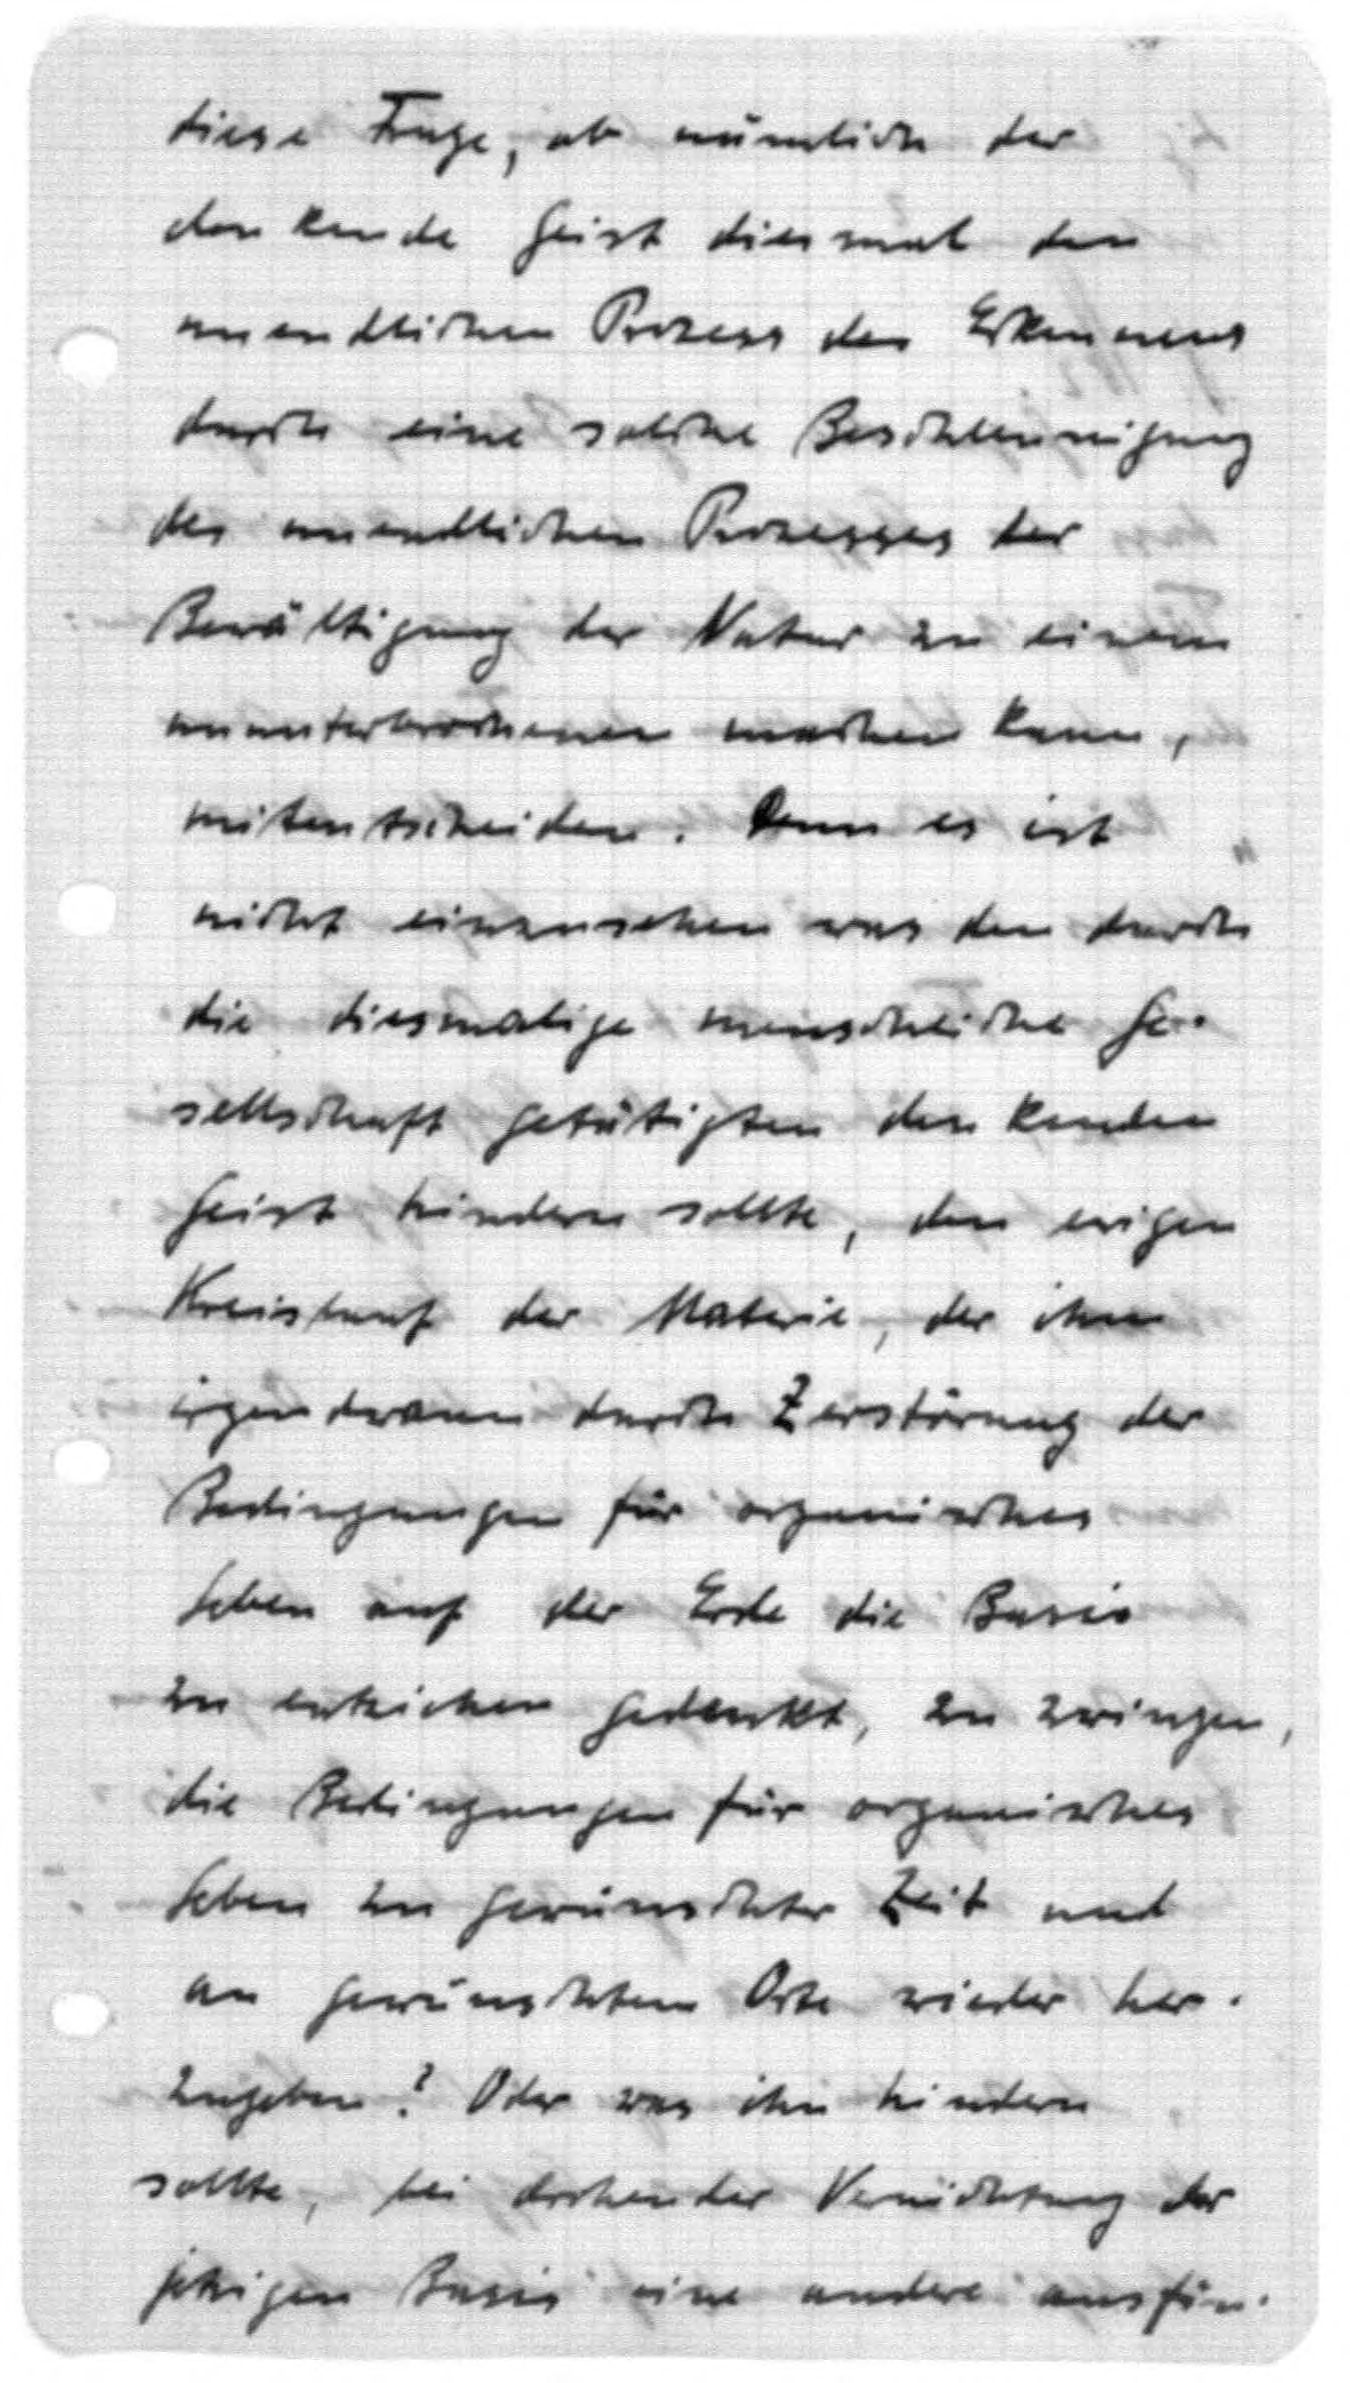 diese Frage, ob nämlich der
denkende Geist diesmal den
unendlichen Prozess des Erkennens
durch eine solche Beschleunigung
des unendlichen Prozesses der
Bewältigung der Natur zu einem
ununterbrochenen machen kann,
mitentscheiden. Denn es ist
nicht einzusehen was den durch
die diesmalige menschliche Ge-
sellschaft getätigten denkenden
Geist hindern sollte, den ewigen
Kreislauf der Materie, der ihm
irgendwann durch Zerstörung der
Bedingungen für organisches
Leben auf der Erde die Basis
zu entziehen gedenkt, zu zwingen,
die Bedingungen für organisches
Leben zu gewünschter Zeit und
an gewünschtem Orte wieder her-
zugeben? Oder was ihn hindern
sollte, bei drohender Vernichtung der
jetzigen Basis eine andere ausfin-